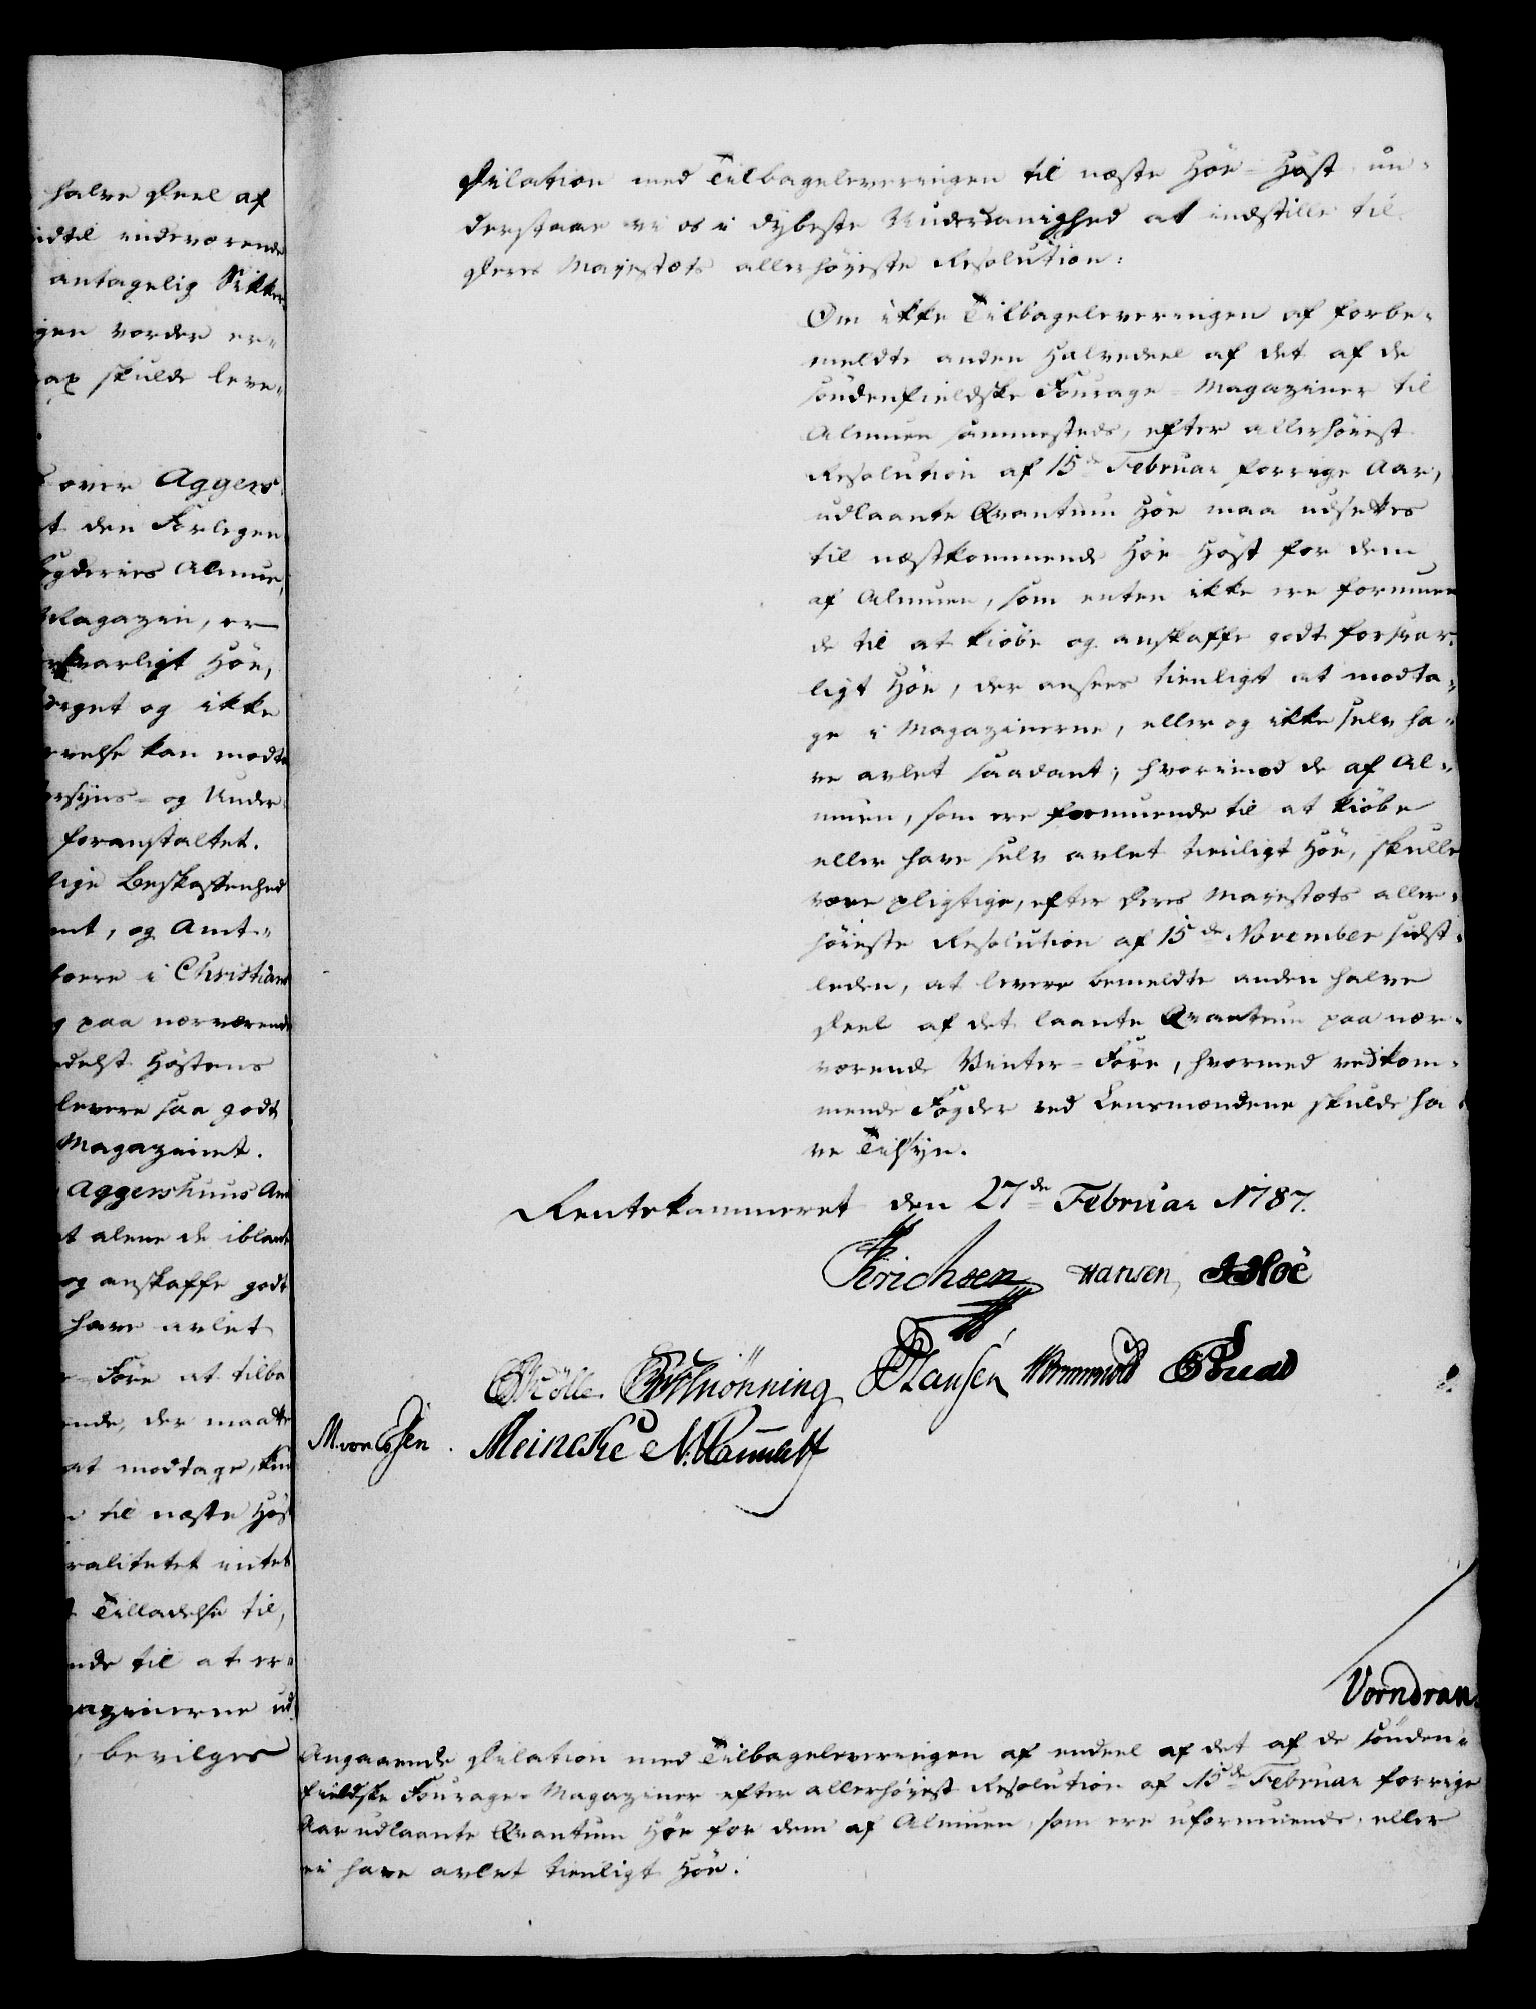 halve Deel af
indeværende
antagelig Sikker-
vorder er-
skulde leve-
over Aggers-
den Forlegen
Almue,
Magazin, er
Höe,
og ikke
kan modta
og Under-
foranstaltet.
Beskaffenhed
og Amt-
i Christians
paa nærværende
Höstens
levere saa godt
Magazinet.
Aggershuus Am
alene de iblant
og anskaffe godt
have avlet
Före at tilba
der maatte
at modtage,
til næste Höst
intet
Tilladelse til,
til at er-
bevilges
Dilation med Tilbageleveringen til næste Höe-Höst un-
derstaae vi os i dybeste Underdanighed at indstille til
Deres Majestæts allerhöyeste Resolution:
Om ikke Tilbageleveringen af forbe-
meldte anden Halvedeel af det af de
söndenfieldske Fourage-Magaziner til
Almuen sammesteds, efter allerhöiest
Resolution af 15de Februar forrige Aar,
udlaante Qvantum Höe maa udsettes
til næstkommende Höe Höst for dem
af Almuen, som enten ikke ere formuen
de til at kiöbe og anskaffe godt forsvar-
ligt Höe, der ansees tienligt at modta-
ge i Magazinerne, eller og ikke selv ha-
ve avlet saadant; hvorimod de af Al-
muen, som ere formuende til at kiöbe
eller have selv avlet tienligt Höe, skulle
være pligtige, efter Deres Majestæts aller-
höieste Resolution af 15de November sidst-
leden, at levere bemeldte anden halve
Deel af det laante Qvantum paa nær-
værende Vinter-Före, hvormed vedkom-
mende Fogder ved Lensmændene skulde ha
ve Tilsyn.
Rentekammeret den 27de Februar 1787.
Erichsen Hansen,
Schönning Hansen Wormskiold
M. von Essen. Meincke
Vorndran.
Angaaende Dilation med Tilbageleveringen af endeel af det af de sönden-
fieldske Fourage-Magaziner efter allerhöyest Resolution af 15de Februar forrige
Aar udlaante Qvantum Höe for dem af Almuen, som ere uformuende, eller
ei have avlet tienligt Höe.